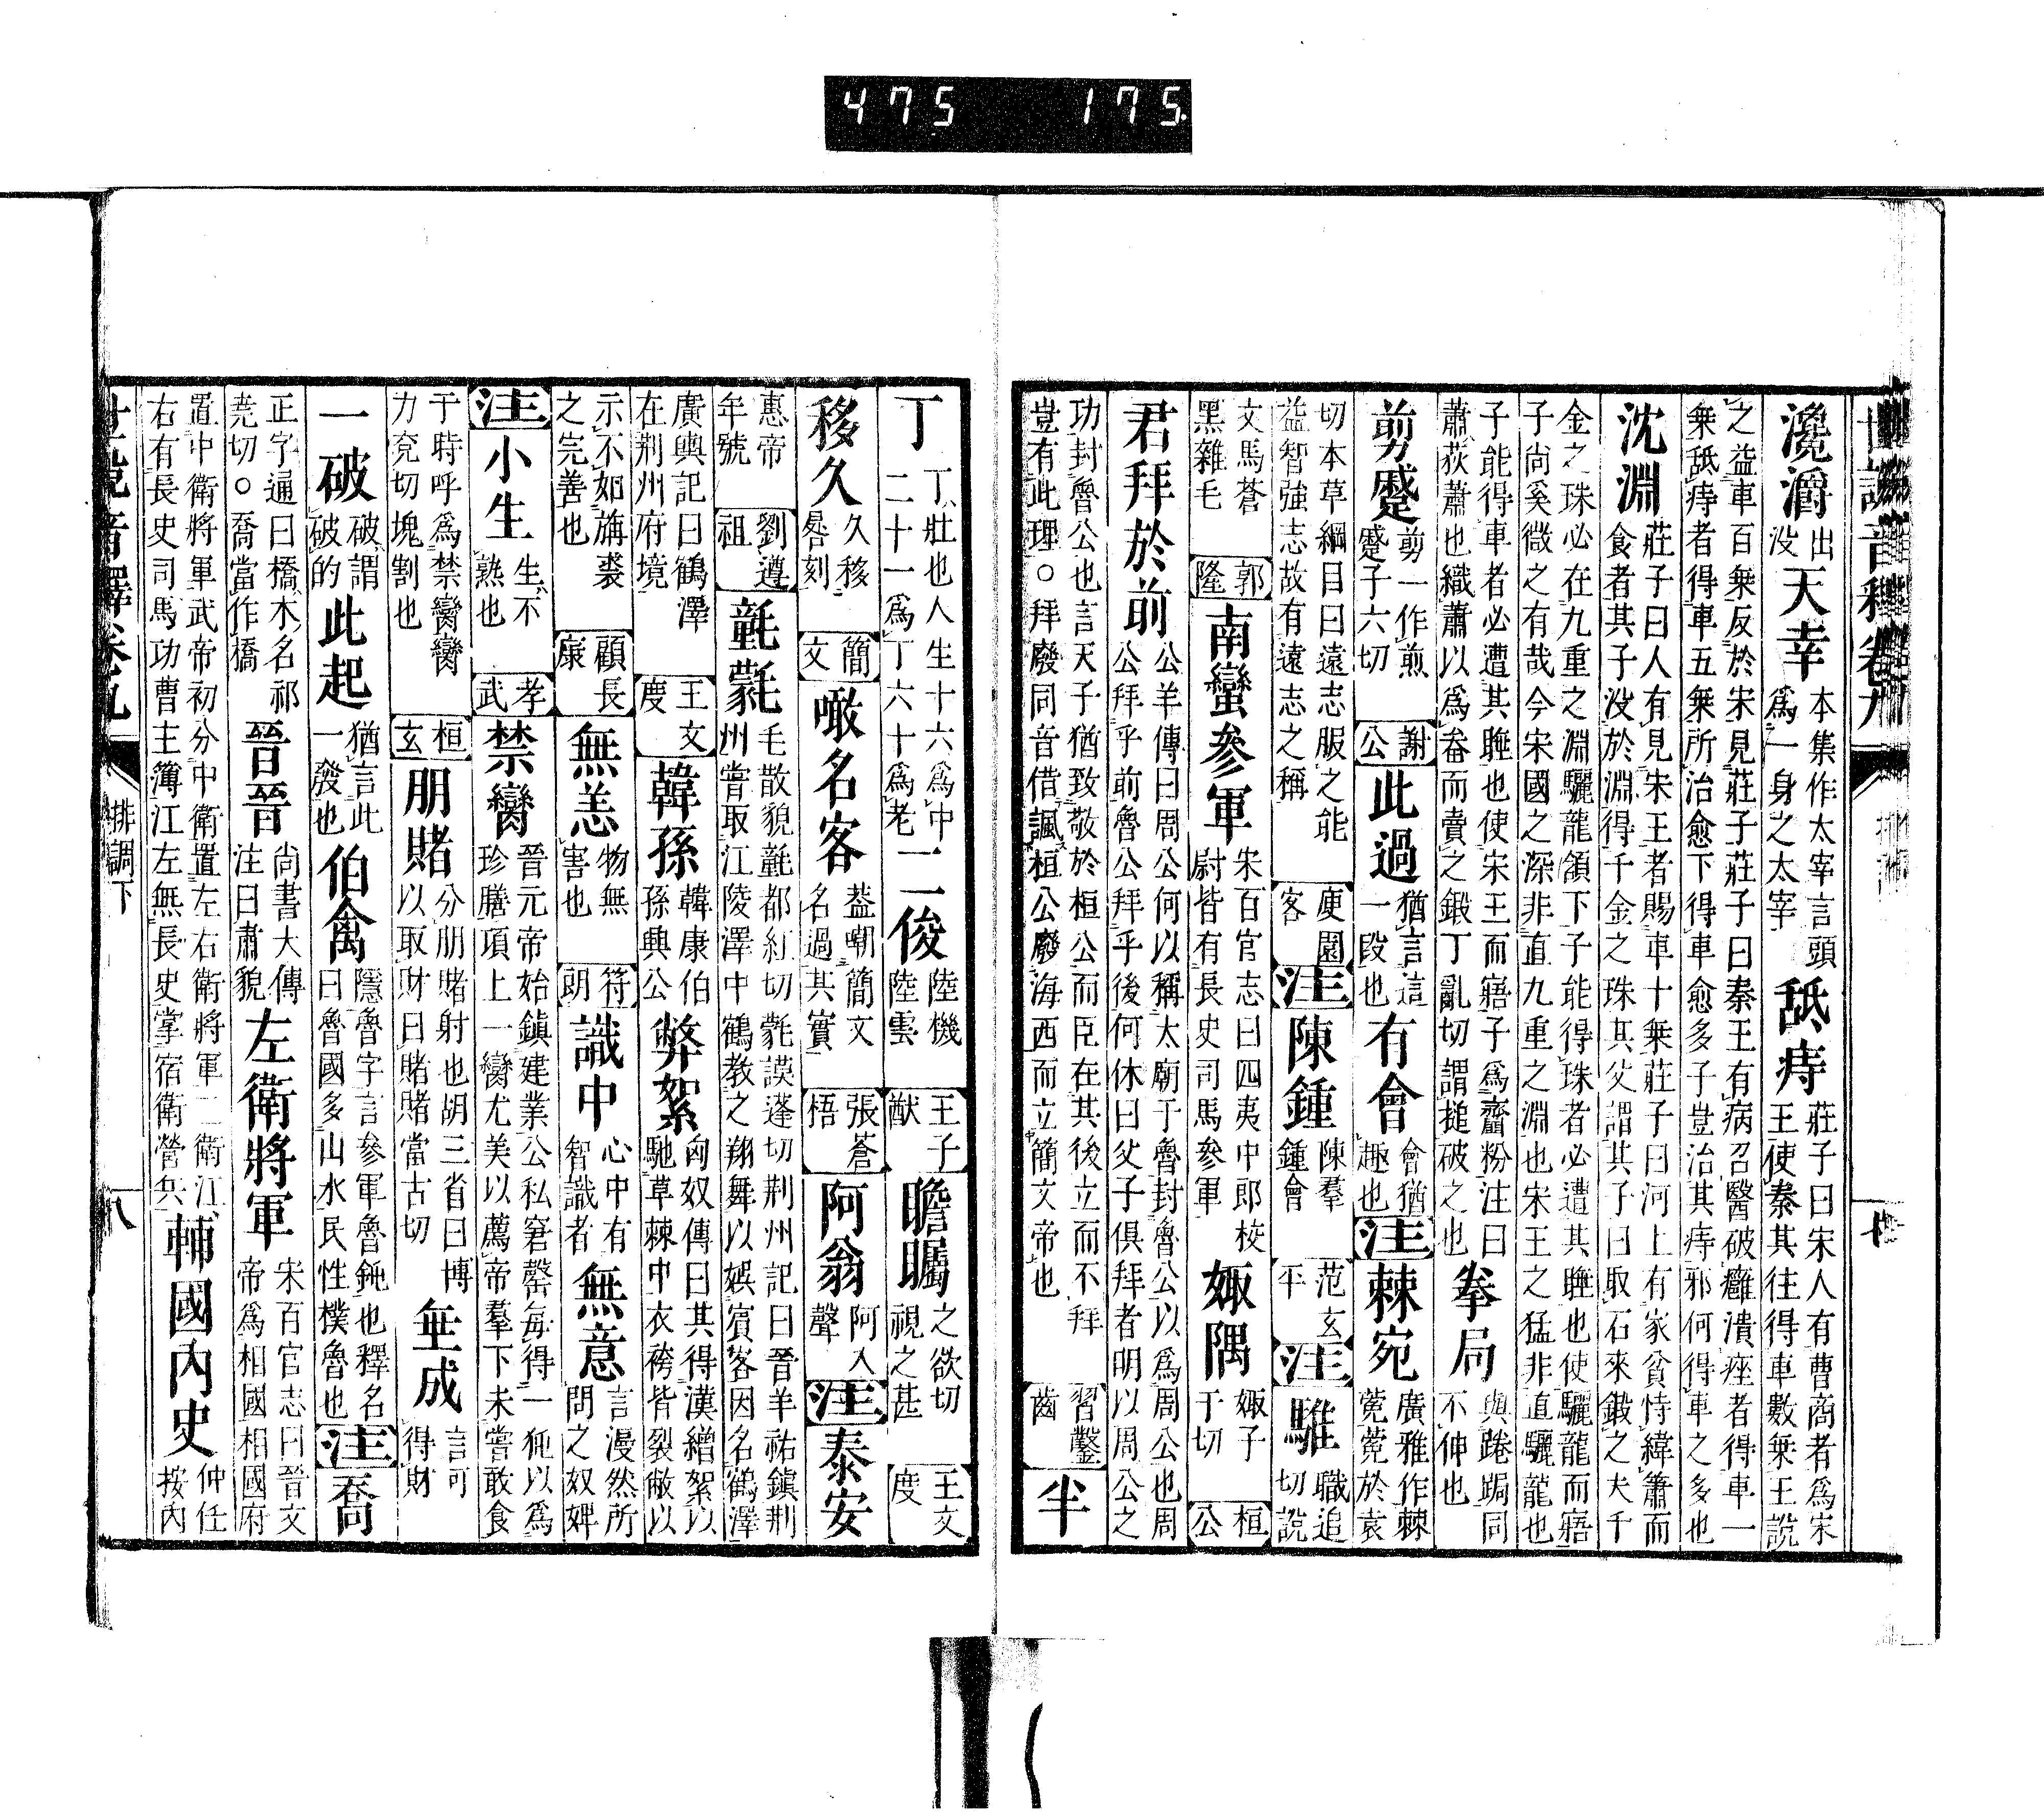 475 175
世説音釋卷九
瀺灂 出没 天幸 本集作太宰言頭爲一身之太宰 舐痔 莊子曰宋人有曹商者爲宋王使秦其往得車數乗王説
之益車百乗反於宋見莊子莊子曰秦王有病召醫破癰潰痤者得車一乗舐痔者得車五乗所治愈下得車愈多子豈治其痔邪何得車之多也
沈淵 莊子曰人有見宋王者賜車十乗莊子曰河上有家貧恃緯蕭而食者其子没於淵得千金之珠其父謂其子曰取石來鍛之夫千
金之珠必在九重之淵驪龍頷下子能得珠者必遭其睡也使驪龍而寤子尚奚微之有哉今宋國之深非直九重之淵也宋王之猛非直驪龍也
子能得車者必遭其睡也使宋王而寤子爲齏粉注曰蕭荻蕭也織蕭以爲畚而賣之鍛丁亂切謂搥破之也 拳局 與踡跼同不伸也
剪蹙 剪一作煎蹙子六切 謝公 此過 猶言這一段也 有會 會猶趣也 注 棘宛 廣雅作棘菀菀於袁
切本草綱目曰遠志服之能益智強志故有遠志之稱 庾園客 注 陳鍾 陳羣鍾會 范玄平 注 騅 職追切説
文馬蒼黑雜毛 郝隆 南蠻參軍 宋百官志曰四夷中郎校尉皆有長史司馬參軍 娵隅 娵子于切 桓公
君拜於前 公羊傳曰周公何以稱太廟于魯封魯公以爲周公也周公拜乎前魯公拜乎後何休曰父子俱拜者明以周公之
功封魯公也言天子猶致敬於桓公而臣在其後立而不拜豈有此理○拜廢同音借諷桓公廢海西而立簡文帝也 習鑿齒 半
丁 丁壯也人生十六爲中二十一爲丁六十爲老 二俊 陸機陸雲 王子猷 瞻矚 之欲切視之甚 王文度
移久 久移晷刻 簡文 噉名客 葢嘲簡文名過其實 張蒼梧 阿翁 阿入聲 注 泰安
惠帝年號 劉遵祖 氃氋 毛散貌氃都紅切氋謨蓬切荆州記曰晉羊祜鎭荆州嘗取江陵澤中鶴教之翔舞以娯賓客因名鶴澤
廣輿記曰鶴澤在荆州府境 王文度 韓孫 韓康伯孫興公 弊絮 匈奴傳曰其得漢繒絮以馳草棘中衣袴皆裂敝以
示不如旃裘之完善也 顧長康 無恙 物無害也 符朗 識中 心中有智識者 無意 言漫然所問之奴婢
注 小生 生不熟也 孝武 禁臠 晉元帝始鎭建業公私窘罄毎得一㹠以爲珍膳項上一臠尤美以薦帝羣下未嘗敢食
于時呼爲禁臠臠力兖切塊割也 桓玄 朋賭 分朋賭射也胡三省曰博以取財曰賭賭當古切 垂成 言可得財
一破 破謂破的 此起 猶言此一發也 伯禽 隱魯字言參軍魯鈍也釋名曰魯國多山水民性樸魯也 注 喬
正字通曰橋木名祁尭切○喬當作橋 晉晉 尚書大傳注曰肅貌 左衛將軍 宋百官志曰晉文帝爲相國相國府
置中衛將軍武帝初分中衛置左右衛將軍二衛江右有長史司馬功曹主簿江左無長史掌宿衛營兵 輔國内史 仲任按内
世説音釋卷九 排調下 八